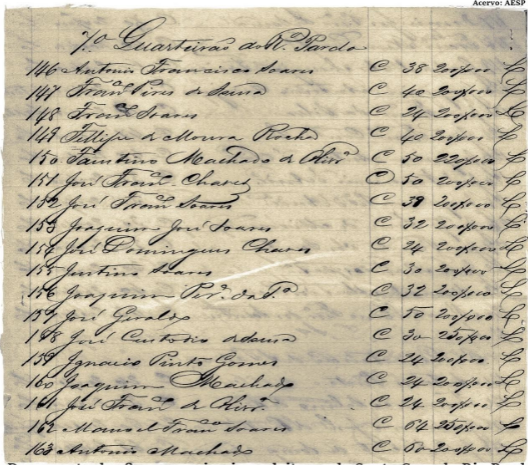 Acervo: AESP
7º Quarteirão do R. Pardo
146 Antonio Francisco Soares C 38 200$000
147 Franco Pires de Sousa C 40 200$000
148 Franco Soares C 24 200$000
149 Fellipe de Moura Rocha C 40 200$000
150 Faustino Machado de Olivrª C 50 220$000
151 José Franco Chaves C 50 200$000
152 José Franco Soares C 38 200$000
153 Joaquim José Soares C 32 200$000
154 José Domingues Chaves C 24 200$000
155 Justino Soares C 30 200$000
156 Joaquim C 32 200$000
157 José Geraldo C 50 200$000
158 José Custodio de Sousa C 30 250$000
159 Ignacio Pinto Gomes C 24 200$000
160 Joaquim Machado C 24 200$000
161 José Franco de Olivrª C 24 200$000
162 Manoel Franco Soares C 67 250$000
163 Antonio Machado C 60 200$000